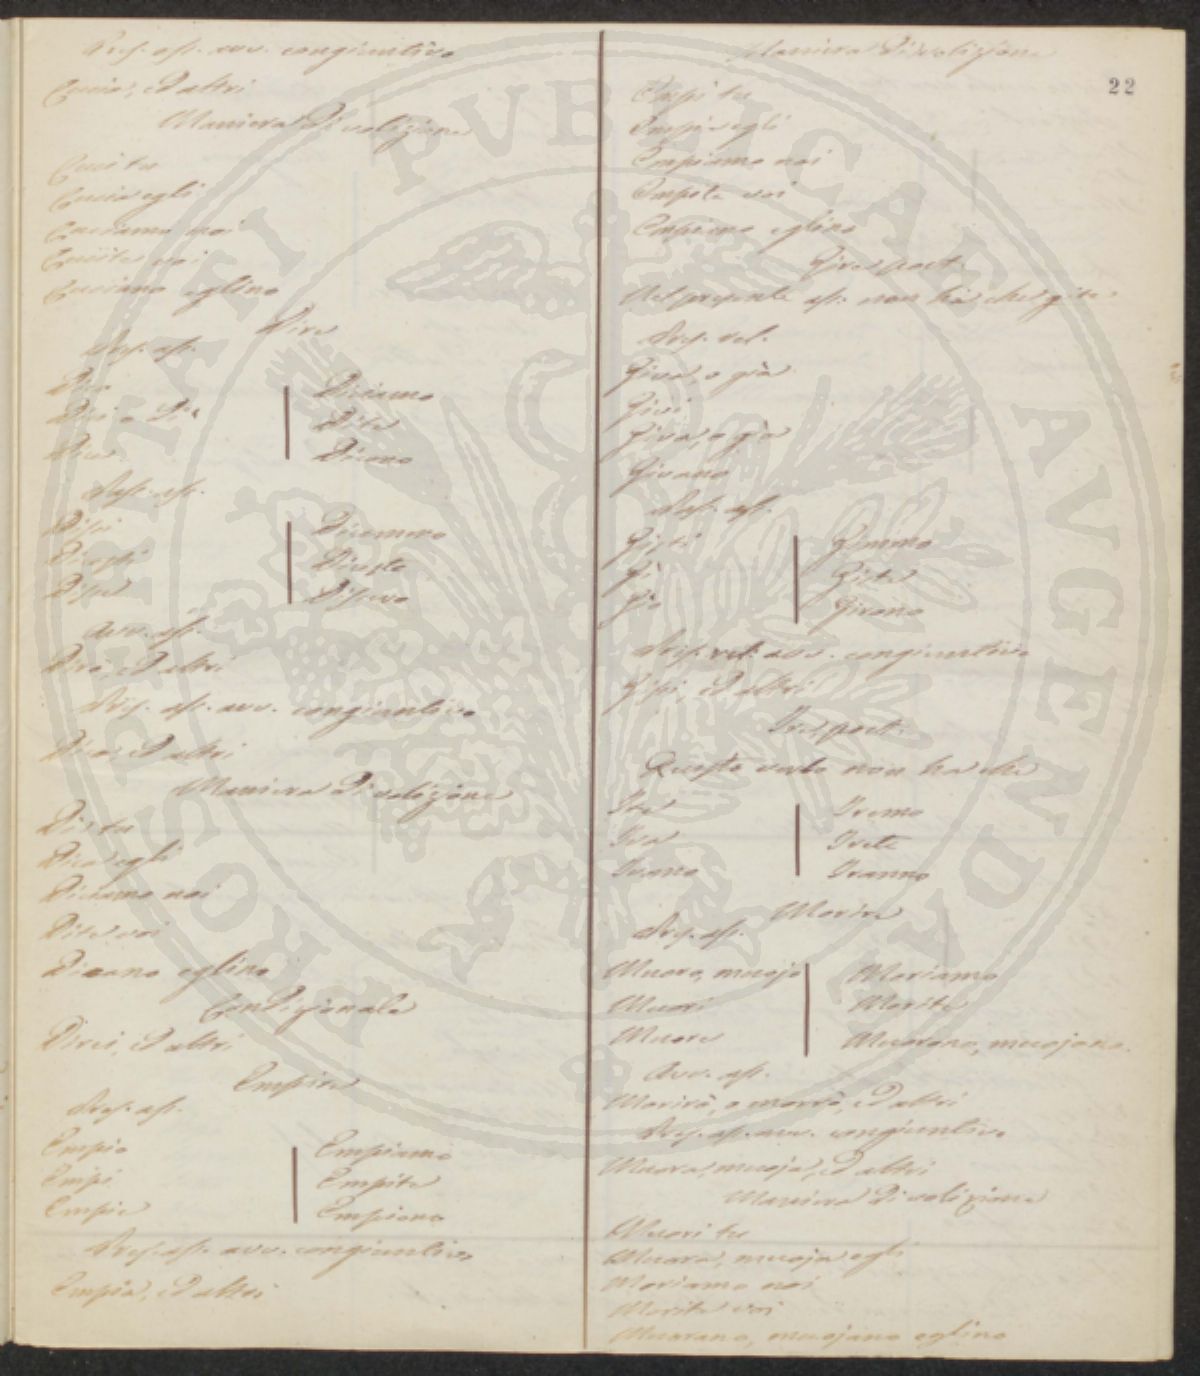 Pres. ass. avv. congiuntivo
Cucia, ed altri
Maniera di volizione
Cuci tu
Cucia egli
Cuciamo noi
Cucite voi
Cuciano eglino
Dire
Pres. ass.
Dico | Diciamo
Dici o Di' | Dite
Dice | Dicono
Pass. ass.
Dissi | Dicemmo
Dicesti | Diceste
Disse | Dissero
Avv. ass.
Dirò, ed altri
Pres. ass. avv. congiuntivo
Dica, ed altri
Maniera di volizione
Di' tu
Dica egli
Diciamo noi
Dite voi
Dicano eglino
Condizionale
Direi, ed altri
Empire
Pres. ass.
Empio | Empiamo
Empi | Empite
Empie | Empiono
Pres. ass. avv. congiuntivo
Empia, ed altri
Maniera di volizione
22
Empi tu
Empia egli
Empiamo noi
Empite voi
Empiano eglino
Gire poet.
Nel presente ass. non ha che gite
Pres. rel.
Giva, o gia
Givi
Giva, o gia
Givano
Pass. ass.
Gisti | Gimmo
Gì | Giste
Gìo | Girono
Pres. rel. avv. congiuntivo
Gissi, ed altri
Ire poet.
Questo verbo non ha che
Ite | Iremo
Iva | Irete
Ivano | Iranno
Morire
Pres. ass.
Muoro, muojo | Moriamo
Muori | Morite
Muore | Muorono, muojono.
Avv. ass.
Morirò, o morrò, ed altri
Pres. ass. avv. congiuntivo
Muora, muoja, ed altri
Maniera di volizione
Muori tu
Muora, muoja egli
Moriamo noi
Morite voi
Muorano, muojano eglino
PROSPERITATI PVBLICAE AVGENDAE